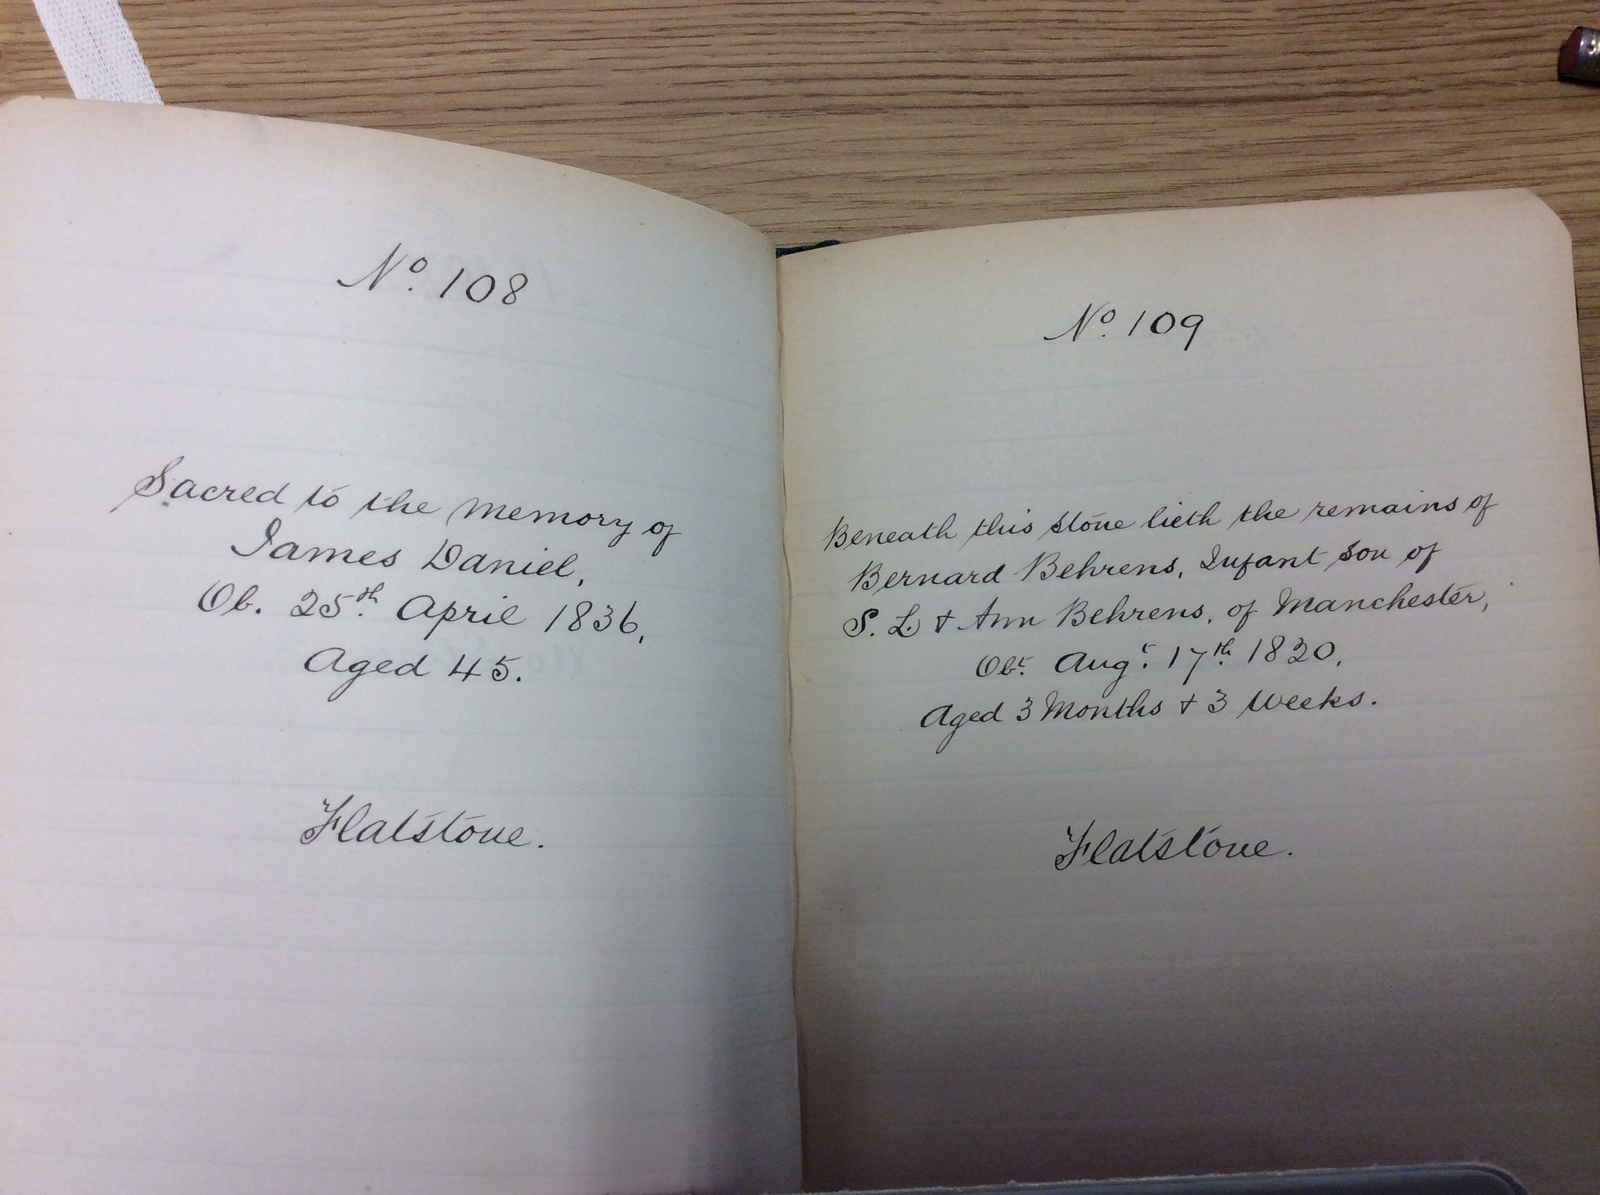 No. 108
Sacred to the memory of
James Daniel,
Ob. 25th. April 1836,
Aged 45.
Flatstone.
No. 109
Beneath this stone lieth the remains of
Bernard Behrens, Infant son of
S. L. & Ann Behrens, of Manchester,
Obt. Augt. 17th. 1820,
Aged 3 Months & 3 Weeks.
Flatstone.